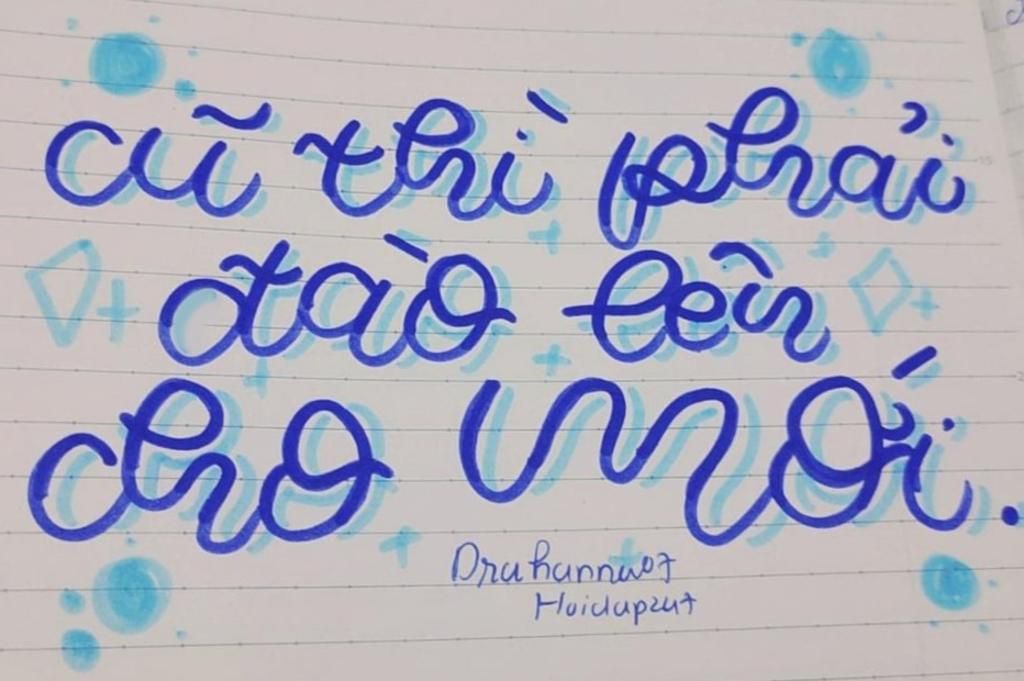 cũ thì phải
đào lên
cho mới.
Druhannuo7
Hoidap247